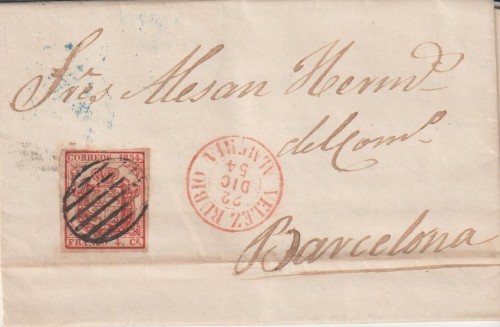 Sres Alesan Hermos
del Como
Barcelona
CORREOS. 1854.
FRANCO. 4. Cs.
VELEZ RUBIO
22
DIC
54
ALMERIA